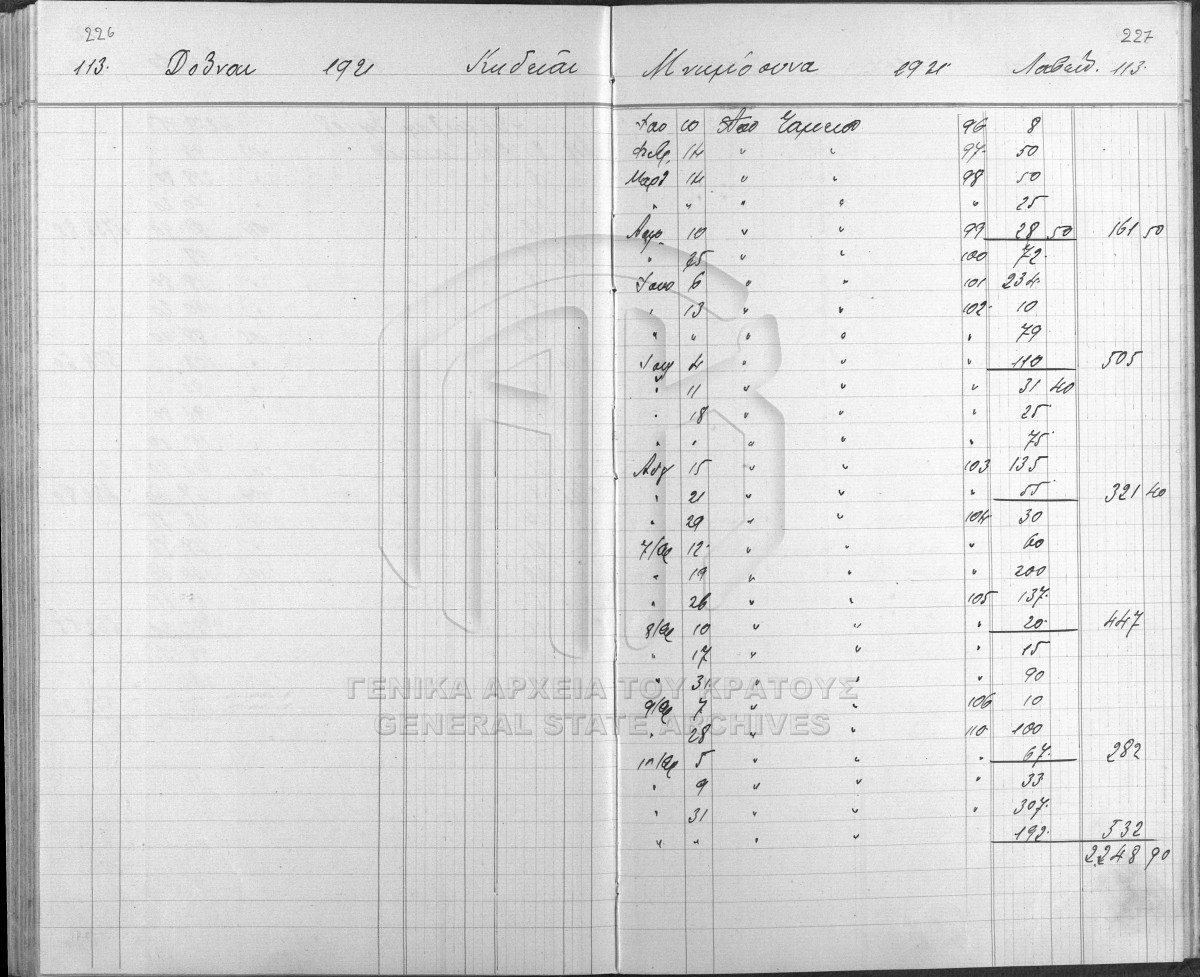 226
113. Δοῦναι 1921 Κηδεῖαι
227
Μνημόσυνα 1921 Λαβεῖν. 113.
Ιαν 10 Απο Ταμειου 96 8
Φεβρ 14 " " 97 50
Μαρτ 14 " " 98 50
" " " " " 25
Απρ 10 " " 99 28 50 161 50
" 25 " " 100 72
Ιουν 6 " " 101 234
" 13 " " 102 10
" " " " " 79
Ιουλ 4 " " " 110 505
" 11 " " " 31 40
" 18 " " " 25
" " " " " 75
Αυγ 15 " " 103 135
" 21 " " " 55 321 40
" 29 " " 104 30
7/βρ 12 " " " 60
" 19 " " " 200
" 26 " " 105 137
8/βρ 10 " " " 20 447
" 17 " " " 15
" 31 " " 90
9/βρ 7 " " 106 10
" 28 " " 110 100
10/βρ 5 " " " 67 282
" 9 " " " 33
" 31 " " " 307
" " " " 192 532
2248 90
ΓΕΝΙΚΑ ΑΡΧΕΙΑ ΤΟΥ ΚΡΑΤΟΥΣ
GENERAL STATE ARCHIVES